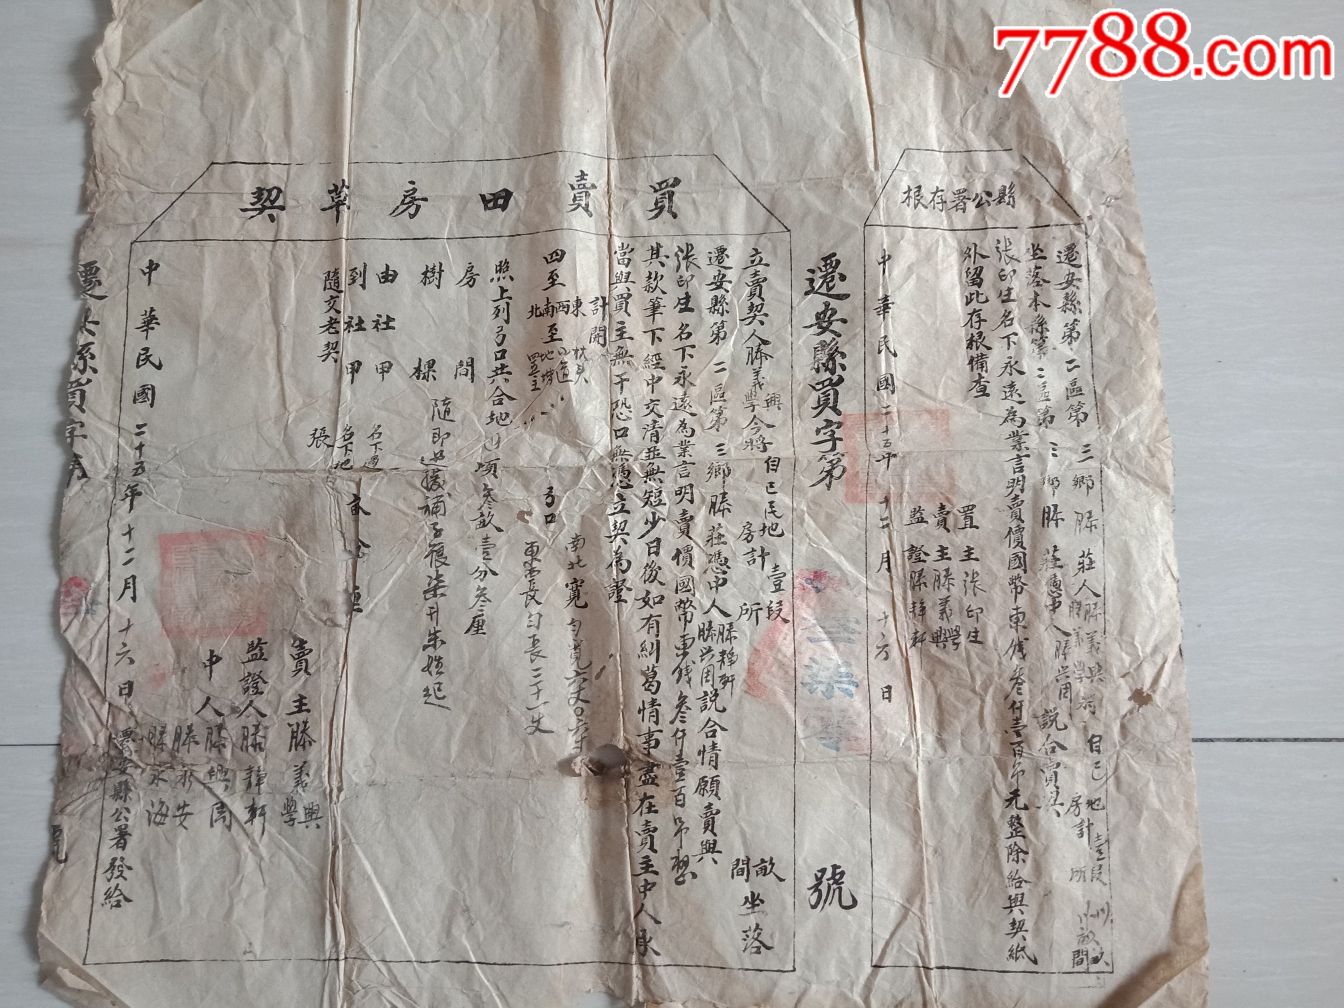 7788.com
縣公署存根
遷安縣第二區第三鄉滕莊人滕義興將自己地壹段
房計所
坐落本縣第二區第三鄉滕莊憑中人滕興周說合賣與
張印生名下永遠為業言明賣價國幣東錢叁仟壹百吊元整除給與契紙
外留此存根備查
置主張印生
賣主滕義興學
監證滕靜軒
中華民國二十五年十二月十六日
遷安縣買字第
號
買賣田房草契
立賣契人滕義興學今將自己民地房計壹段所
畝間坐落
遷安縣第二區第三鄉滕莊憑中人滕靜軒滕興周說合情願賣與
張印生名下永遠為業言明賣價國幣東錢叁仟壹百吊整
其款筆下經中交清並無短少日後如有糾葛情事盡在賣主中人承
當與買主無干恐口無憑立契為證
計開
四至東西南北至
弓口南北寬
東西長勻長二十一丈
照上列弓口共合地頃叁畝壹分叁厘
房間
樹棵
隨即
由社甲名下過
到社甲名下地
隨文老契張
賣主滕義興學
監證人滕靜軒
中人滕興周
滕永安
滕永海
中華民國二十五年十二月十六日遷安縣公署發給
遷安縣買字第
號